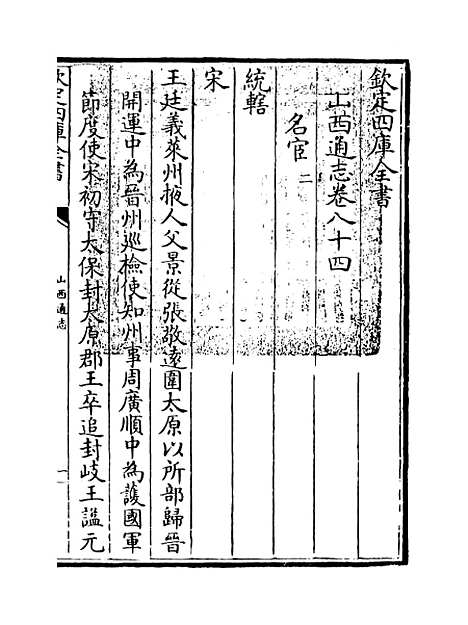 欽定四庫全書
山西通志卷八十四
名宦二
統轄
宋
王廷義萊州掖人父景從張敬逵圍太原以所部歸晉
開運中為晉州巡檢使知州事周廣順中為護國軍
節度使宋初守太保封太原郡王卒追封岐王諡元
欽定四庫全書
山西通志
一